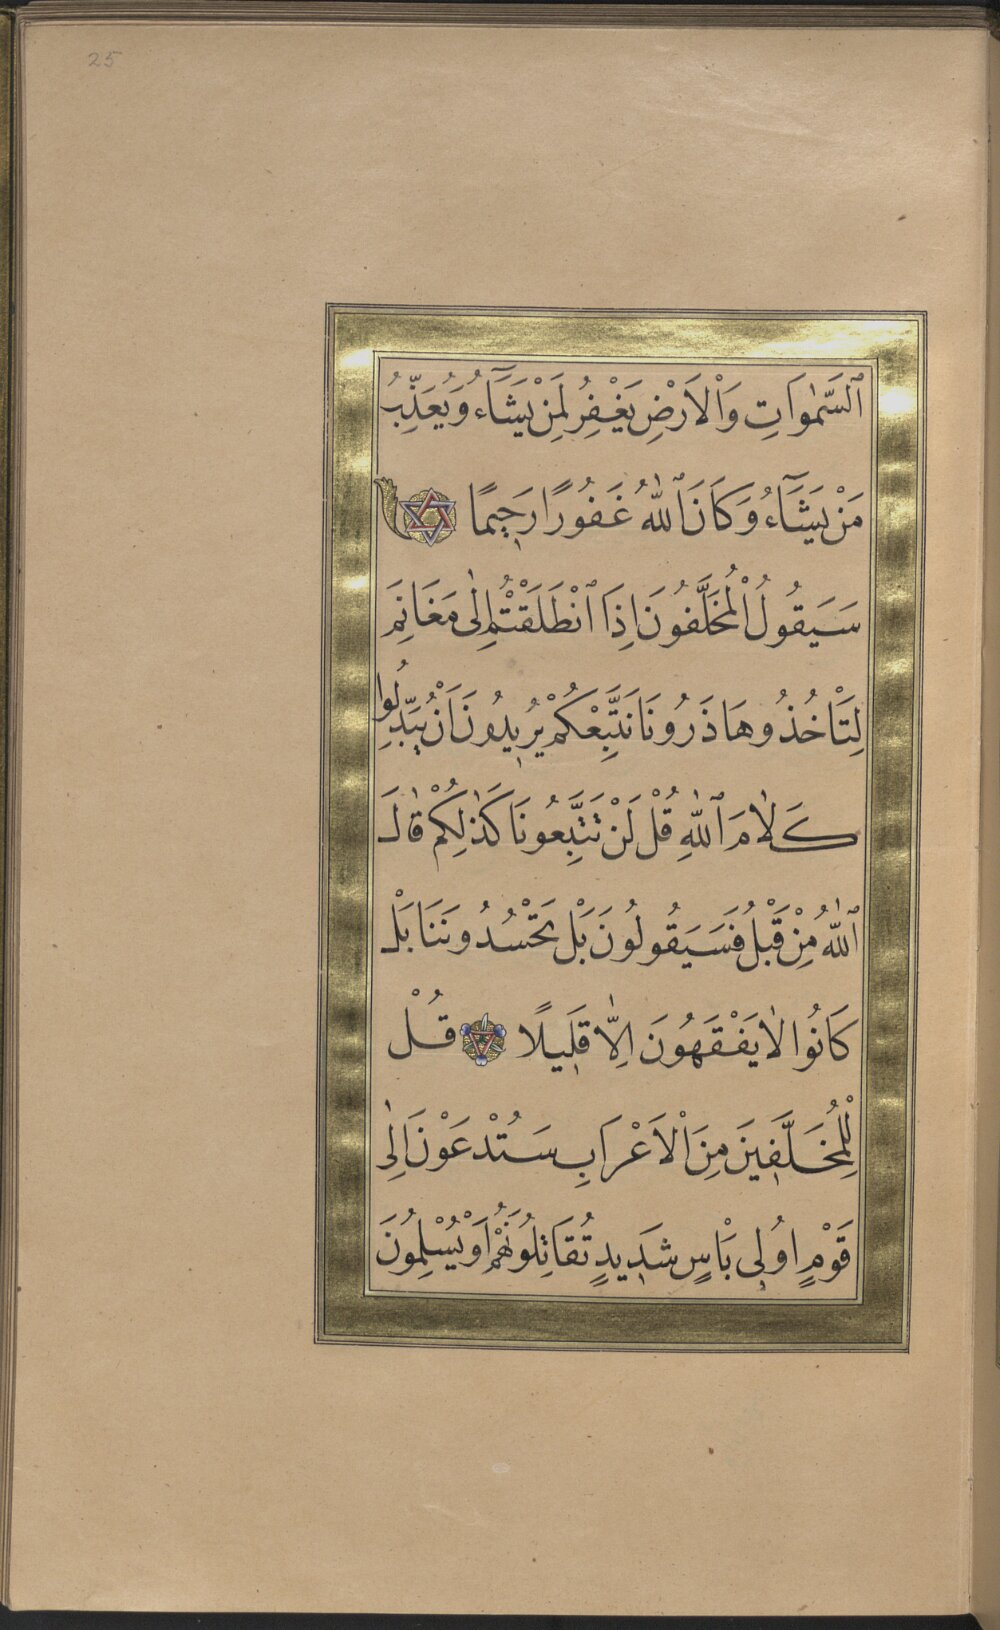 25
ٱلسَّمٰوَاتِ وَالْاَرْضِ يَغْفِرُ لِمَنْ يَشَٓاءُ وَيُعَذِّبُ
مَنْ يَشَٓاءُ وَكَانَ ٱللّٰهُ غَفُورًا رَحٖيمًا
سَيَقُولُ الْمُخَلَّفُونَ اِذَا ٱنْطَلَقْتُمْ اِلٰى مَغَانِمَ
لِتَاْخُذُوهَا ذَرُونَا نَتَّبِعْكُمْ يُرٖيدُونَ اَنْ يُبَدِّلُوا
كَلَامَ ٱللّٰهِ قُلْ لَنْ تَتَّبِعُونَا كَذٰلِكُمْ قَالَ
ٱللّٰهُ مِنْ قَبْلُ فَسَيَقُولُونَ بَلْ تَحْسُدُونَنَا بَلْ
كَانُوا لَا يَفْقَهُونَ اِلَّا قَلٖيلًا قُلْ
لِلْمُخَلَّفٖينَ مِنَ الْاَعْرَابِ سَتُدْعَوْنَ اِلٰى
قَوْمٍ اُولٖى بَاْسٍ شَدٖيدٍ تُقَاتِلُونَهُمْ اَوْ يُسْلِمُونَ